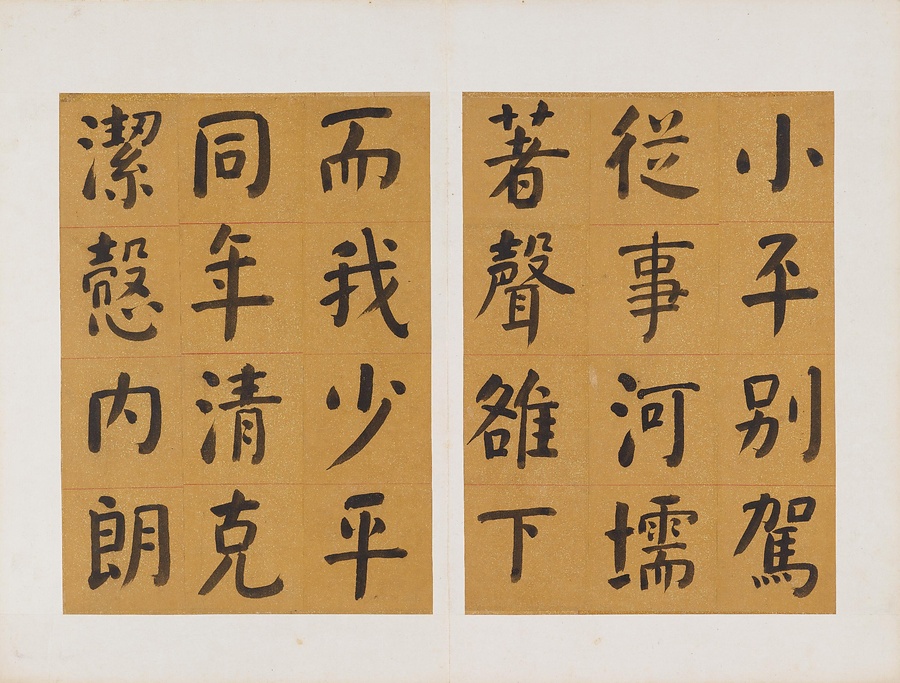 小丕别駕
従事河壖
著聲雒下
而我少平
同年清克
潔慤内朗